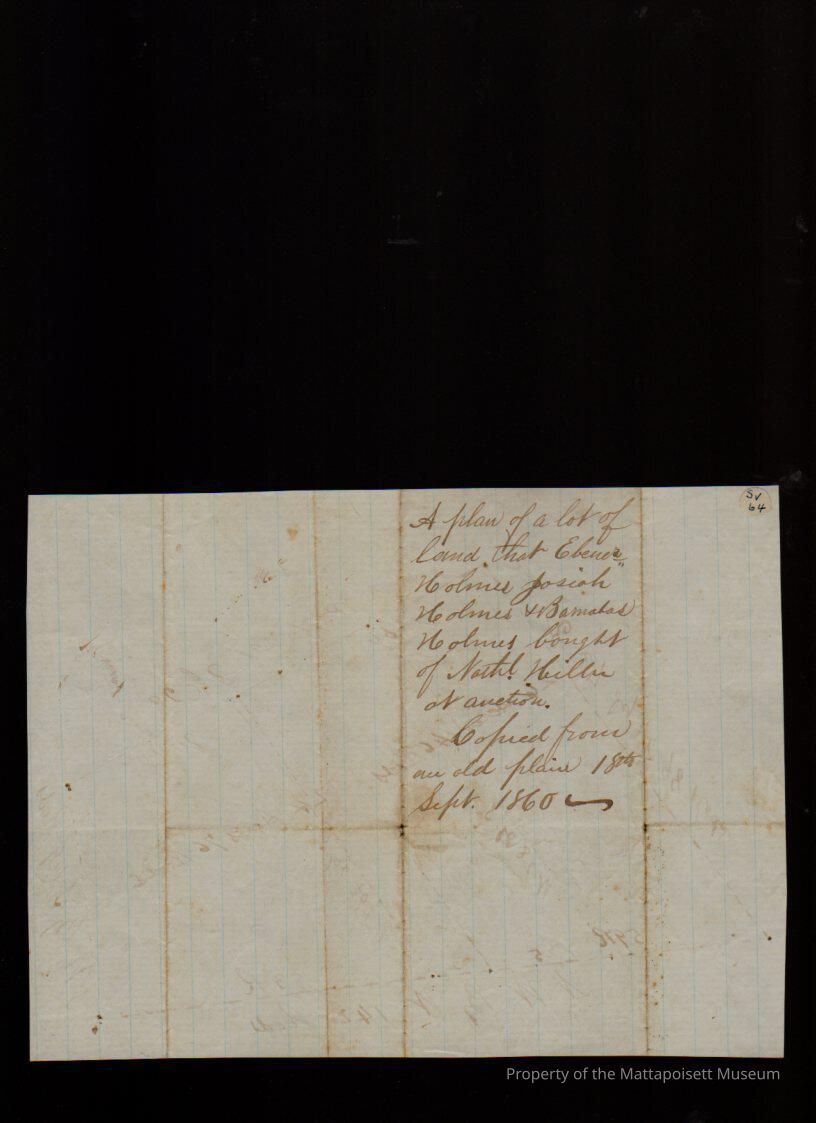 SV
64
A plan of a lot of
land that Ebenez"
Holmes Josiah
Holmes & Barnabas
Holmes bought
of Nathl. Hiller
at auction.
Copied from
an old plann 18th
Sept. 1860
Property of the Mattapoisett Museum